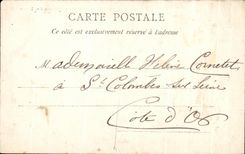 CARTE POSTALE
Ce côté est exclusivement réservé à l'adresse
Mademoiselle Hélène Cornetet
à Ste Colombe sur Seine
Côte d'Or